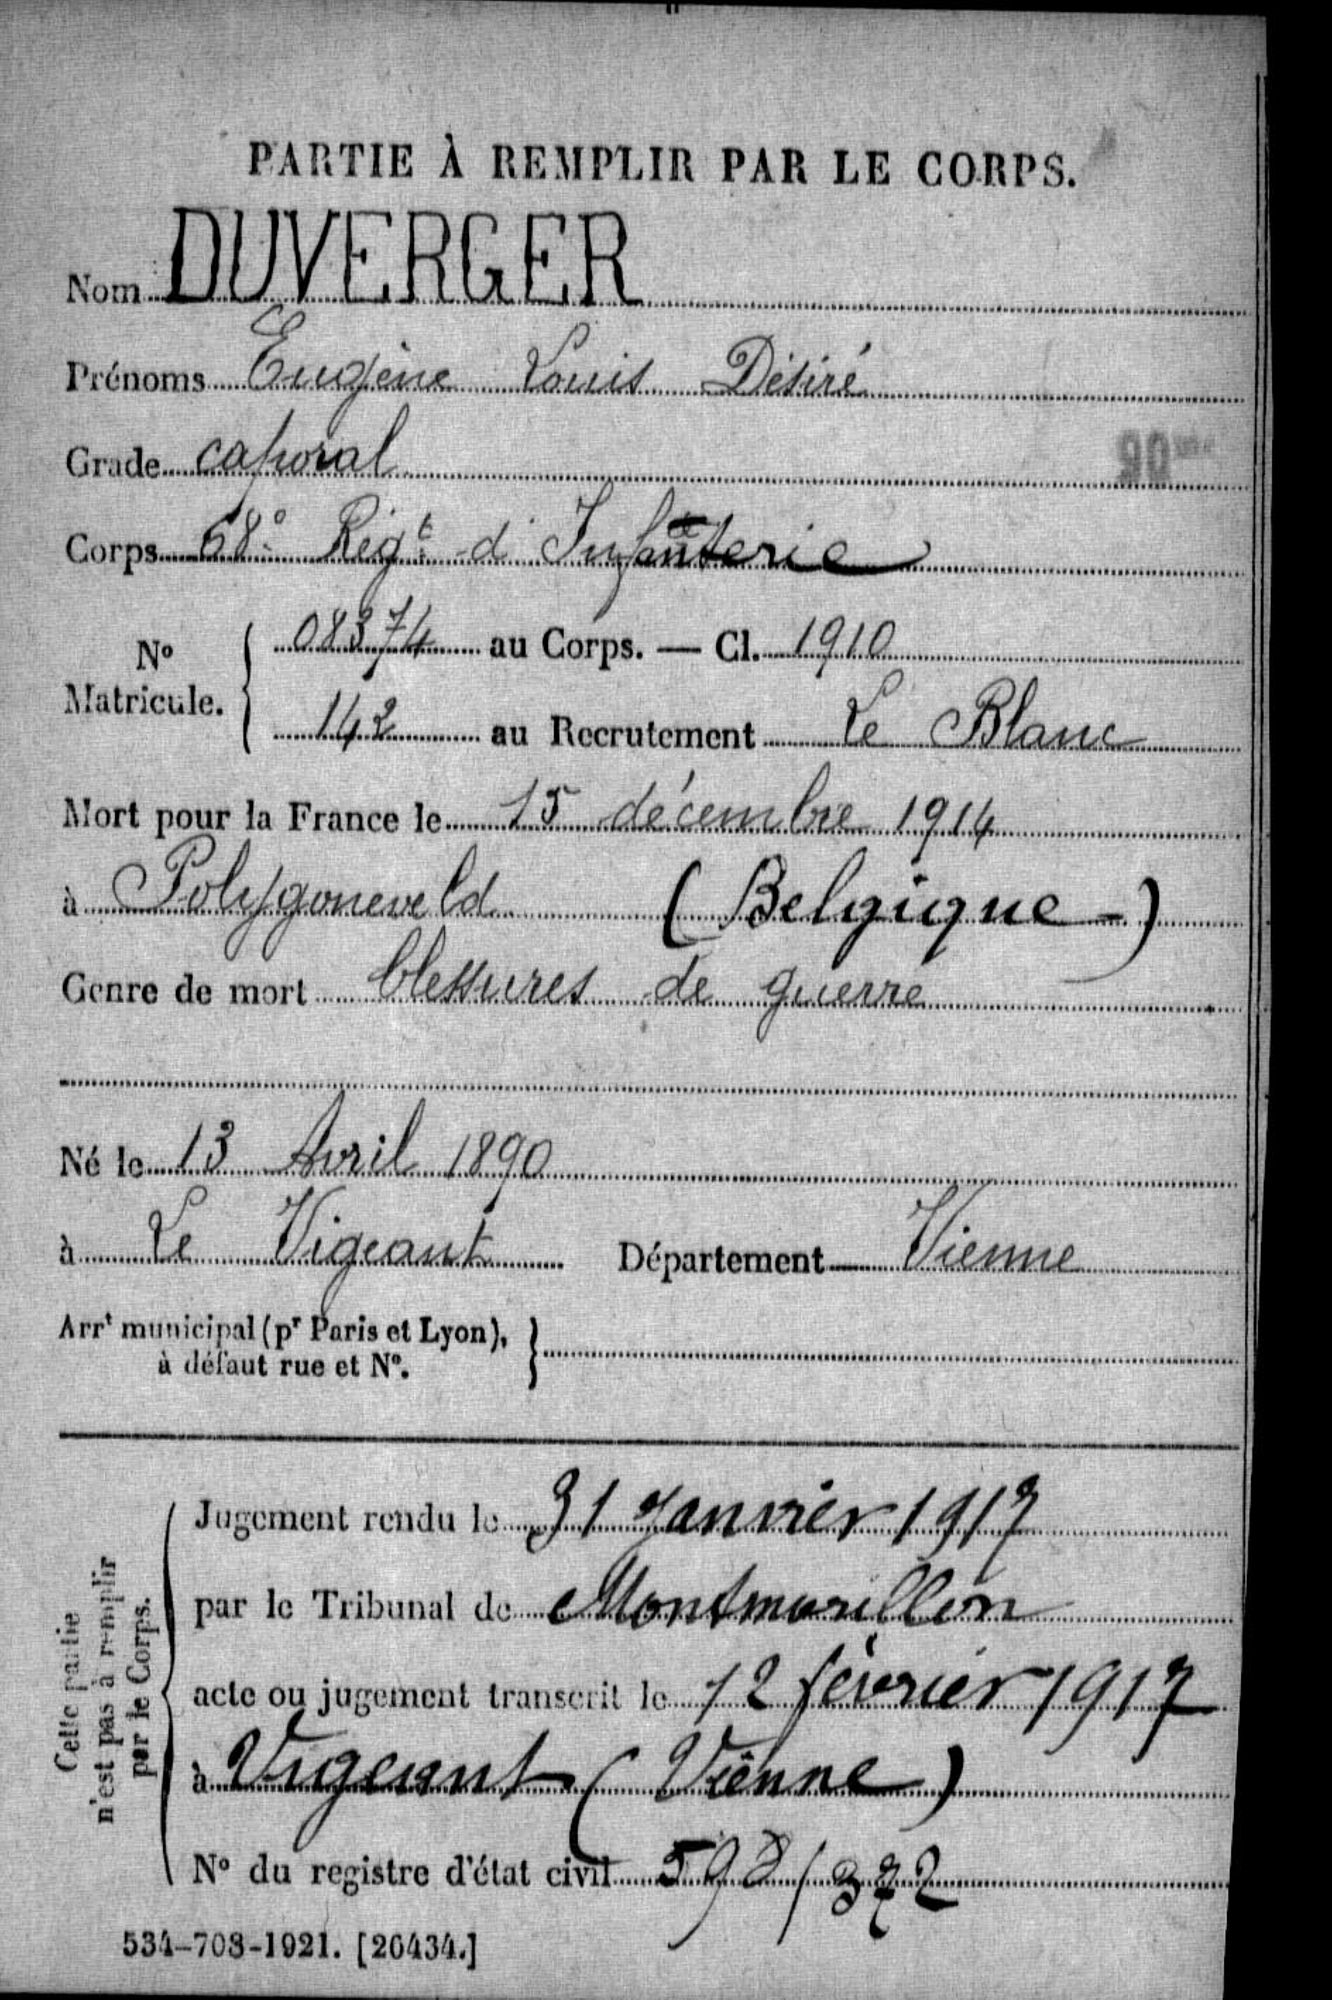 PARTIE À REMPLIR PAR LE CORPS.
Nom DUVERGER
Prénoms Eugène Louis Désiré
Grade caporal
90
Corps 68e Régt d'Infanterie
No Matricule. { 08374 au Corps. — Cl. 1910
142 au Recrutement Le Blanc
Mort pour la France le 15 décembre 1914
à Polygoneveld (Belgique)
Genre de mort blessures de guerre
Né le 13 Avril 1890
à Le Vigeant Département Vienne
Arrt municipal (pr Paris et Lyon), à défaut rue et No. }
Cette partie n'est pas à remplir par le Corps.
Jugement rendu le 31 Janvier 1917
par le Tribunal de Montmorillon
acte ou jugement transcrit le 12 février 1917
à Vigeant (Vienne)
No du registre d'état civil 598/372
534-708-1921. [26434.]